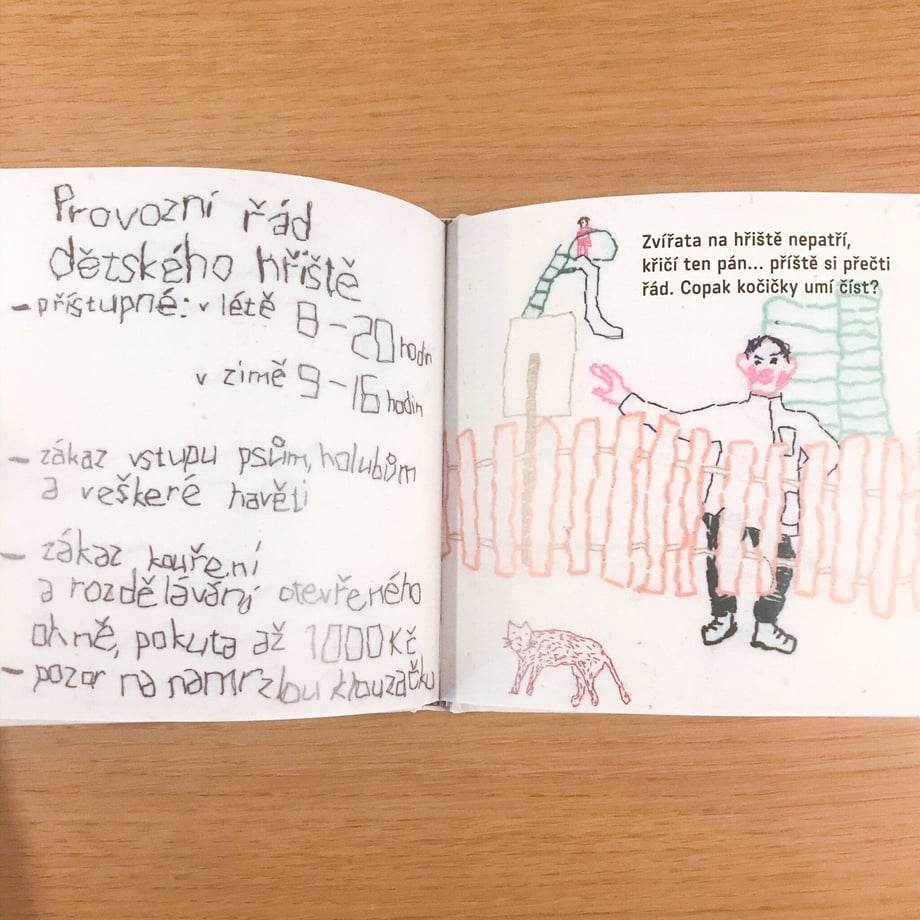 Provozní řád
dětského hřiště
- přístupné: v létě 8-20 hodin
v zimě 9-16 hodin
- zákaz vstupu psům, holubům
a veškeré havěti
- zákaz kouření
a rozdělávání otevřeného
ohně, pokuta až 1000 Kč
- pozor na namrzlou klouzačku
Zvířata na hřiště nepatří,
křičí ten pán... příště si přečti
řád. Copak kočičky umí číst?